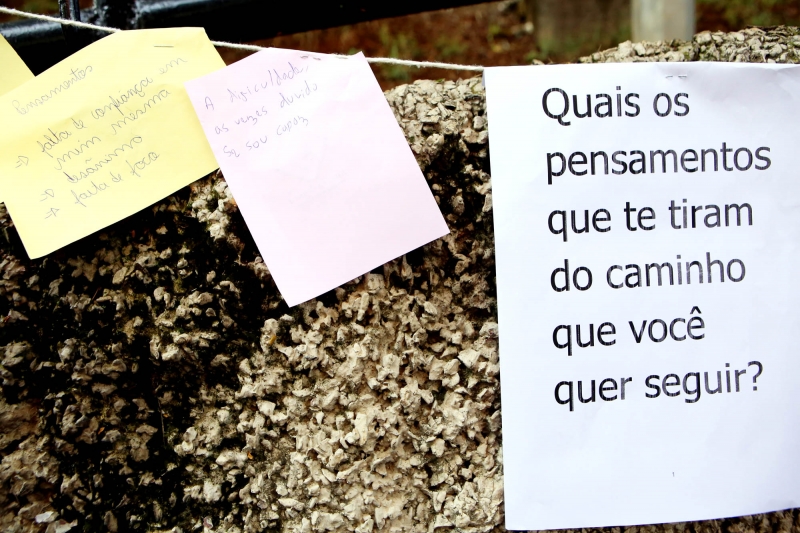 Pensamentos
=> falta de confiança em
mim mesma
=> desânimo
=> falta de foco
A dificuldade,
as vezes duvido
se sou capaz
Quais os
pensamentos
que te tiram
do caminho
que você
quer seguir?